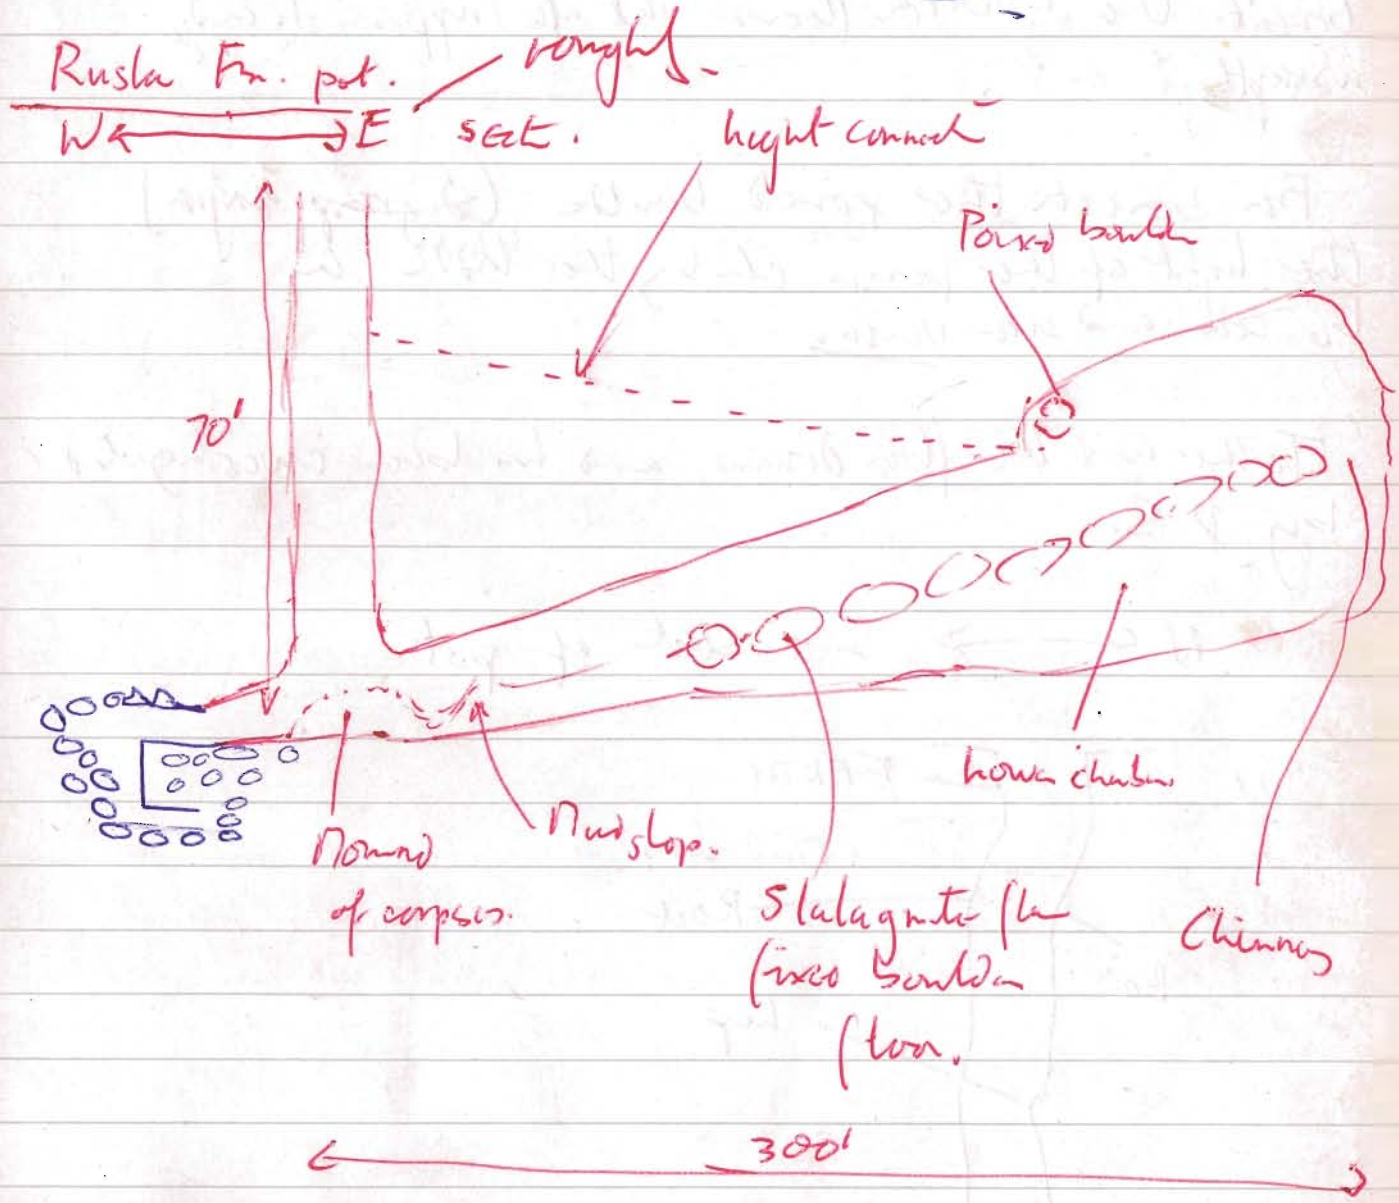 Rusla Fm. pot.
roughly
W E sect.
height connect
Poised boulder
70'
Lower chamber
Mud slop.
Mound
of corpses.
Stalagmite flow
fixed boulder
floor.
Chimney
300'